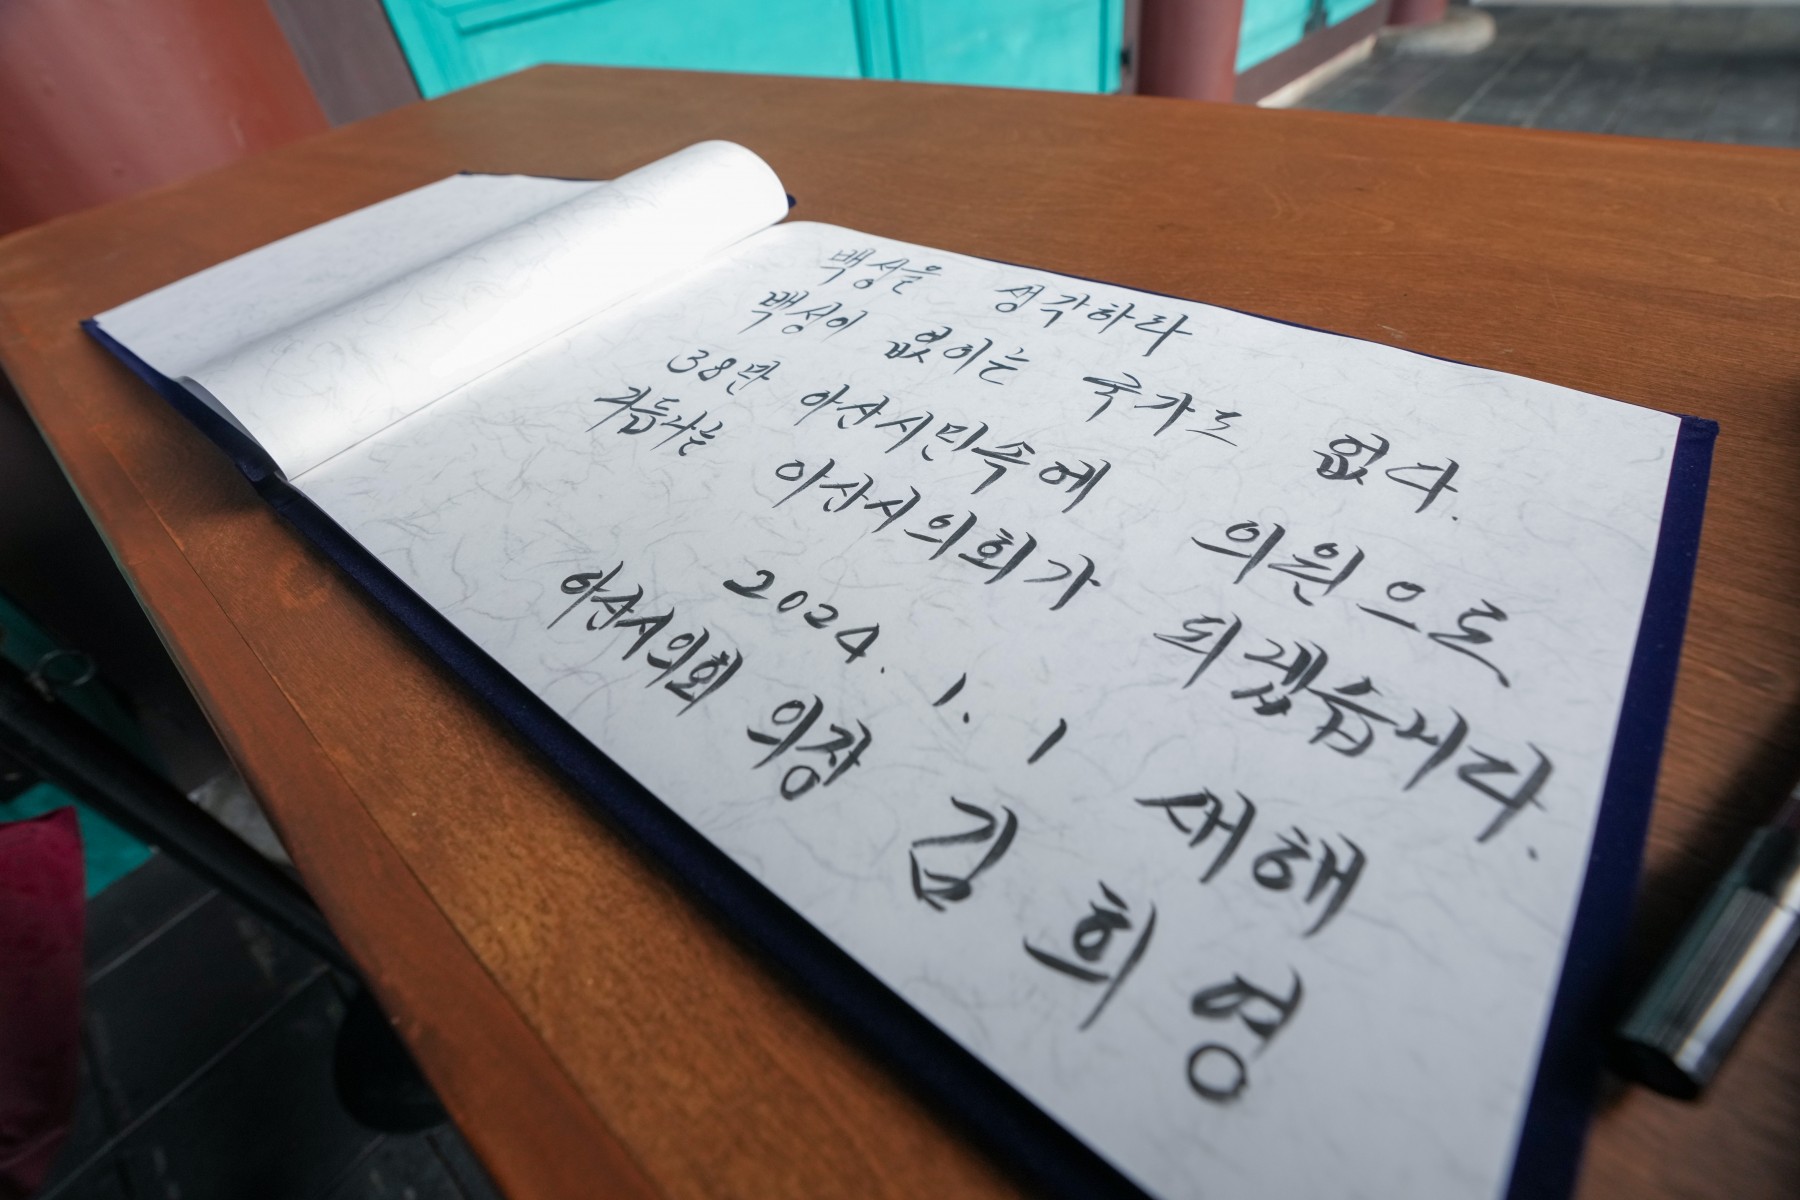 백성을 생각하라
백성이 없이는 국가도 없다.
38만 아산시민속에 의원으로
거듭나는 아산시의회가 되겠습니다.
2024. 1. 1 새해
아산시의회 의장 김희영